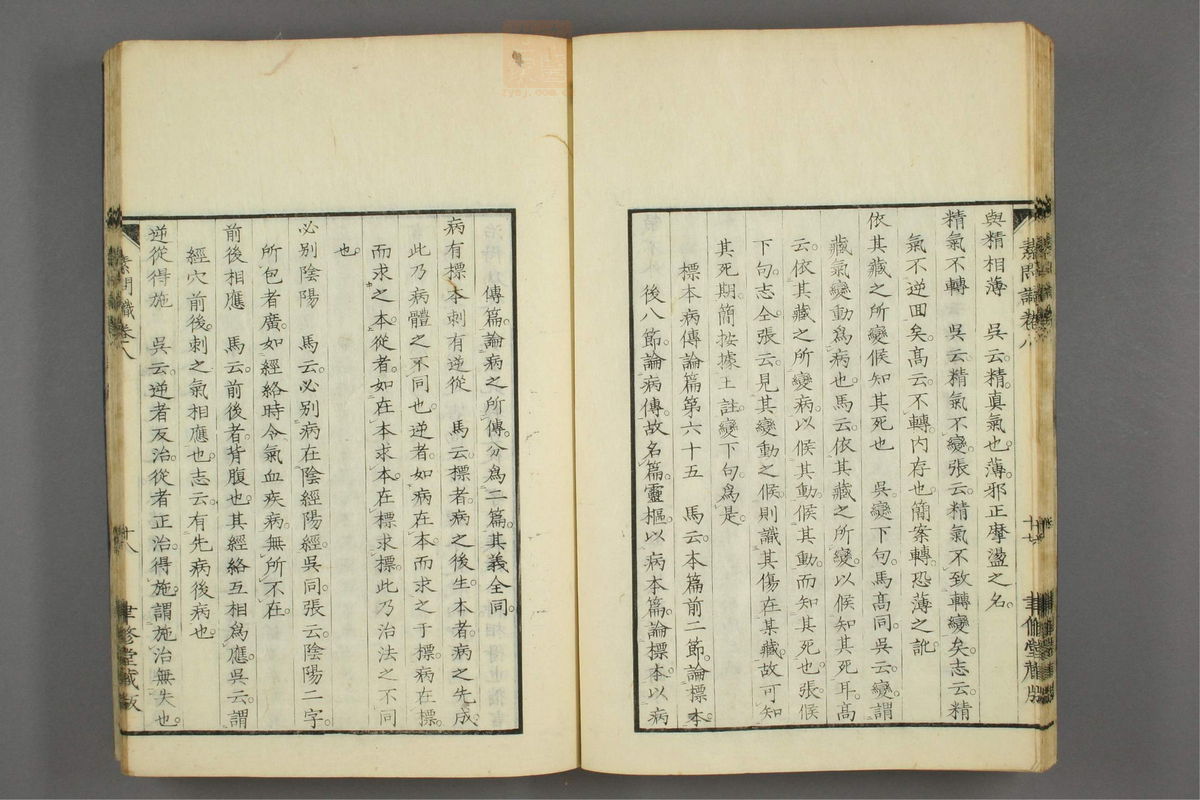 與精相薄　吳云精真氣也薄邪正摩盪之名
精氣不轉　吳云精氣不變張云精氣不致轉變矣志云精
氣不逆回矣高云不轉內存也簡案轉恐薄之訛
依其藏之所變候知其死也　吳變下句馬高同吳云變謂
藏氣變動爲病也馬云依其藏之所變以候知其死耳高
云依其藏之所變病以候其動候其動而知其死也張候
下句志仝張云見其變動之候則識其傷在某藏故可知
其死期簡按據王註變下句爲是
標本病傳論篇第六十五　馬云本篇前二節論標本
後八節論病傳故名篇靈樞以病本篇論標本以病
傳篇論病之所傳分爲二篇其義全同
病有標本刺有逆從　馬云標者病之後生本者病之先成
此乃病體之不同也逆者如病在本而求之于標病在標
而求之本從者如在本求本在標求標此乃治法之不同
也
必別陰陽　馬云必別病在陰經陽經吳同張云陰陽二字
所包者廣如經絡時令氣血疾病無所不在
前後相應　馬云前後者背腹也其經絡互相爲應吳云謂
經穴前後刺之氣相應也志云有先病後病也
逆從得施　吳云逆者反治從者正治得施謂施治無失也
素問識卷八
廿八
聿修堂藏板